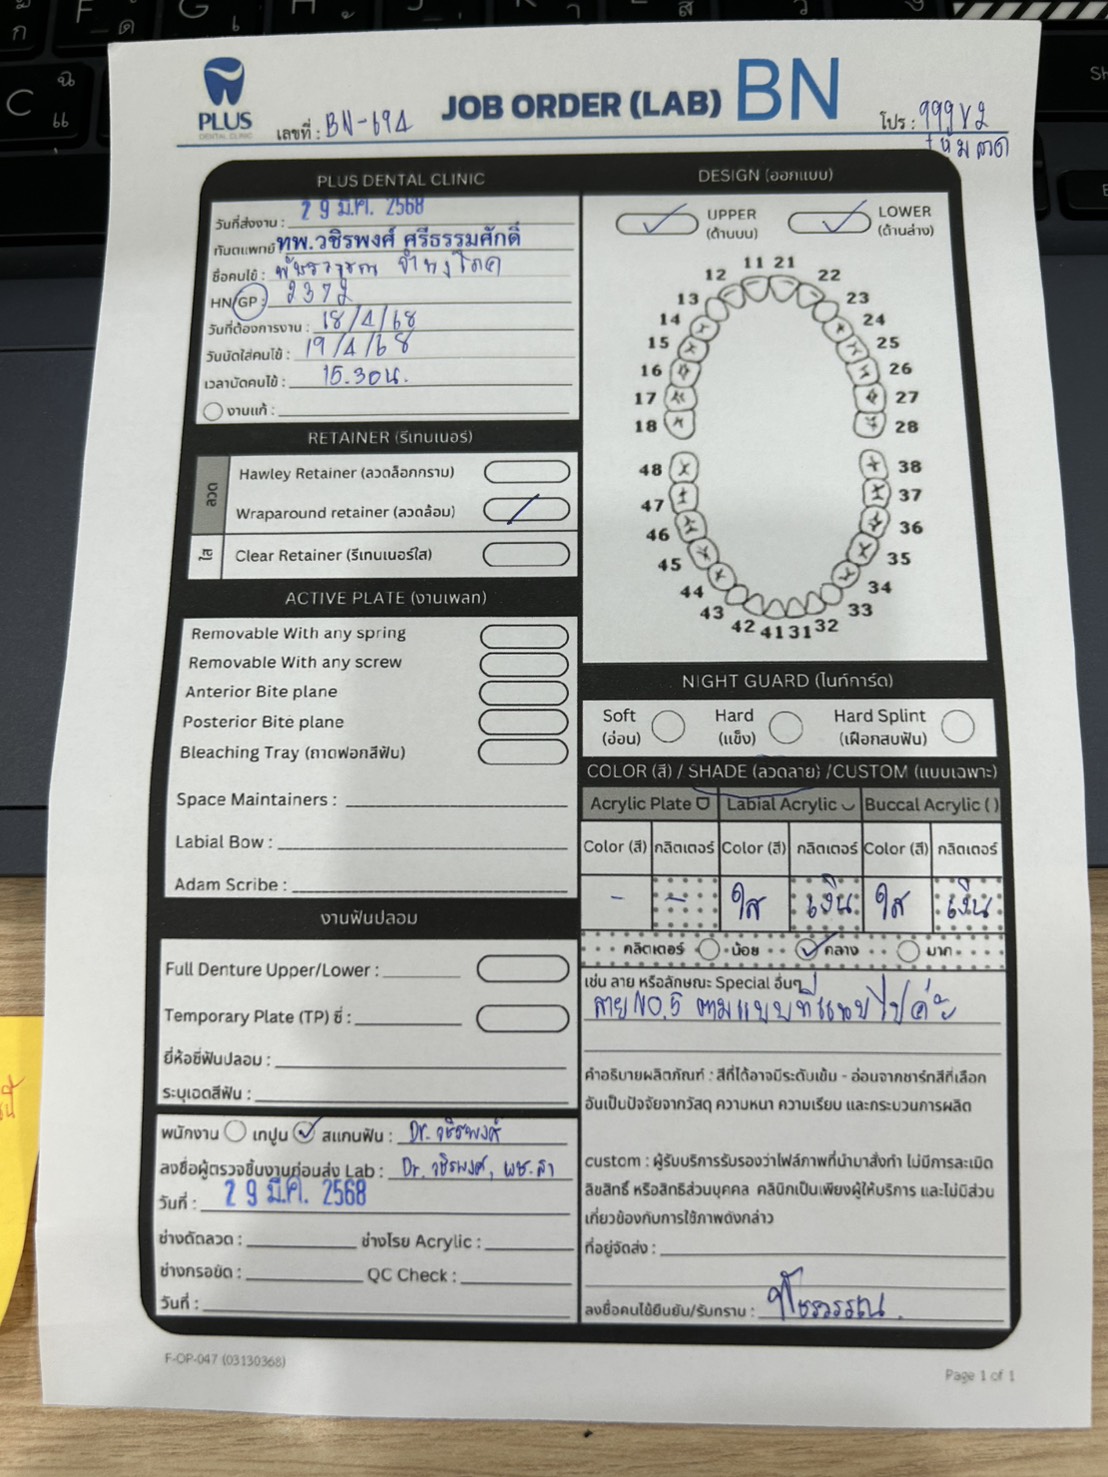 PLUS
DENTAL CLINIC
เลขที่ : BN-694
JOB ORDER (LAB) BN
โปร : 999x2
PLUS DENTAL CLINIC
วันที่ส่งงาน : 29 มี.ค. 2568
ทันตแพทย์ ทพ.วชิรพงศ์ ศรีธรรมศักดิ์
ชื่อคนไข้ :
HN/GP : 2372
วันที่ต้องการงาน : 18/4/68
วันนัดใส่คนไข้ : 19/4/68
เวลานัดคนไข้ : 15.30น.
งานแก้ :
RETAINER (รีเทนเนอร์)
ลวด
Hawley Retainer (ลวดล็อกกราม)
Wraparound retainer (ลวดล้อม)
ใส
Clear Retainer (รีเทนเนอร์ใส)
ACTIVE PLATE (งานเพลท)
Removable With any spring
Removable With any screw
Anterior Bite plane
Posterior Bite plane
Bleaching Tray (ถาดฟอกสีฟัน)
Space Maintainers :
Labial Bow :
Adam Scribe :
งานฟันปลอม
Full Denture Upper/Lower :
Temporary Plate (TP) ซี่ :
ยี่ห้อซี่ฟันปลอม :
ระบุเฉดสีฟัน :
พนักงาน เทปูน สแกนฟัน : Dr. วชิรพงศ์
ลงชื่อผู้ตรวจชิ้นงานก่อนส่ง Lab : Dr. วชิรพงศ์, ผช.ลำ
วันที่ : 29 มี.ค. 2568
ช่างดัดลวด : ช่างโรย Acrylic :
ช่างกรอขัด : QC Check :
วันที่ :
DESIGN (ออกแบบ)
UPPER
(ด้านบน)
LOWER
(ด้านล่าง)
11 21
12 22
13 23
14 24
15 25
16 26
17 27
18 28
48 38
47 37
46 36
45 35
44 34
43 33
42 41 31 32
NIGHT GUARD (ไนท์การ์ด)
Soft
(อ่อน)
Hard
(แข็ง)
Hard Splint
(เฝือกสบฟัน)
COLOR (สี) / SHADE (ลวดลาย) /CUSTOM (แบบเฉพาะ)
Acrylic Plate Labial Acrylic Buccal Acrylic ( )
Color (สี) กลิตเตอร์ Color (สี) กลิตเตอร์ Color (สี) กลิตเตอร์
- - ใส เงิน ใส เงิน
กลิตเตอร์ น้อย กลาง มาก
เช่น ลาย หรือลักษณะ Special อื่นๆ
ลาย NO.5 ตามแบบที่แนบไปค่ะ
คำอธิบายผลิตภัณฑ์ : สีที่ได้อาจมีระดับเข้ม - อ่อนจากชาร์ทสีที่เลือก
อันเป็นปัจจัยจากวัสดุ ความหนา ความเรียบ และกระบวนการผลิต
custom : ผู้รับบริการรับรองว่าไฟล์ภาพที่นำมาสั่งทำ ไม่มีการละเมิด
ลิขสิทธิ์ หรือสิทธิส่วนบุคคล คลินิกเป็นเพียงผู้ให้บริการ และไม่มีส่วน
เกี่ยวข้องกับการใช้ภาพดังกล่าว
ที่อยู่จัดส่ง :
ลงชื่อคนไข้ยืนยัน/รับทราบ : พัชรวรรณ
F-OP-047 (03130368)
Page 1 of 1